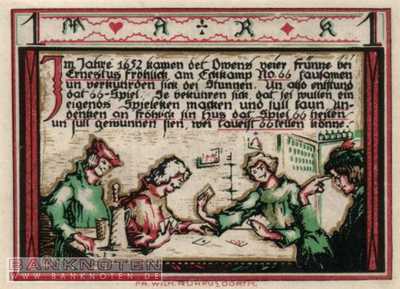 1 M A R K 1
Im Jahre 1652 kamen det Owens veier frünne bez
Ernestus fröhlich am Eckkamp No. 66 tausamen
un verkürden sick dei Stunnen. Un also entstund
dat 66-Spiel. Se beküren sick, dat sei wullen ein
eigends Spieleken macken und sull taun an-
denken an fröhlich sin Hus dat Spiel 66 heiten,
un sull gewunnen sien, wei tauerst 66 tellen könne.
BANKNOTEN
WWW.BANKNOTEN.DE